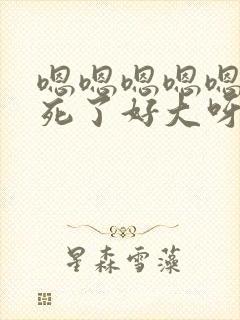 嗯嗯嗯嗯嗯
死了好大呀
星森雪藻